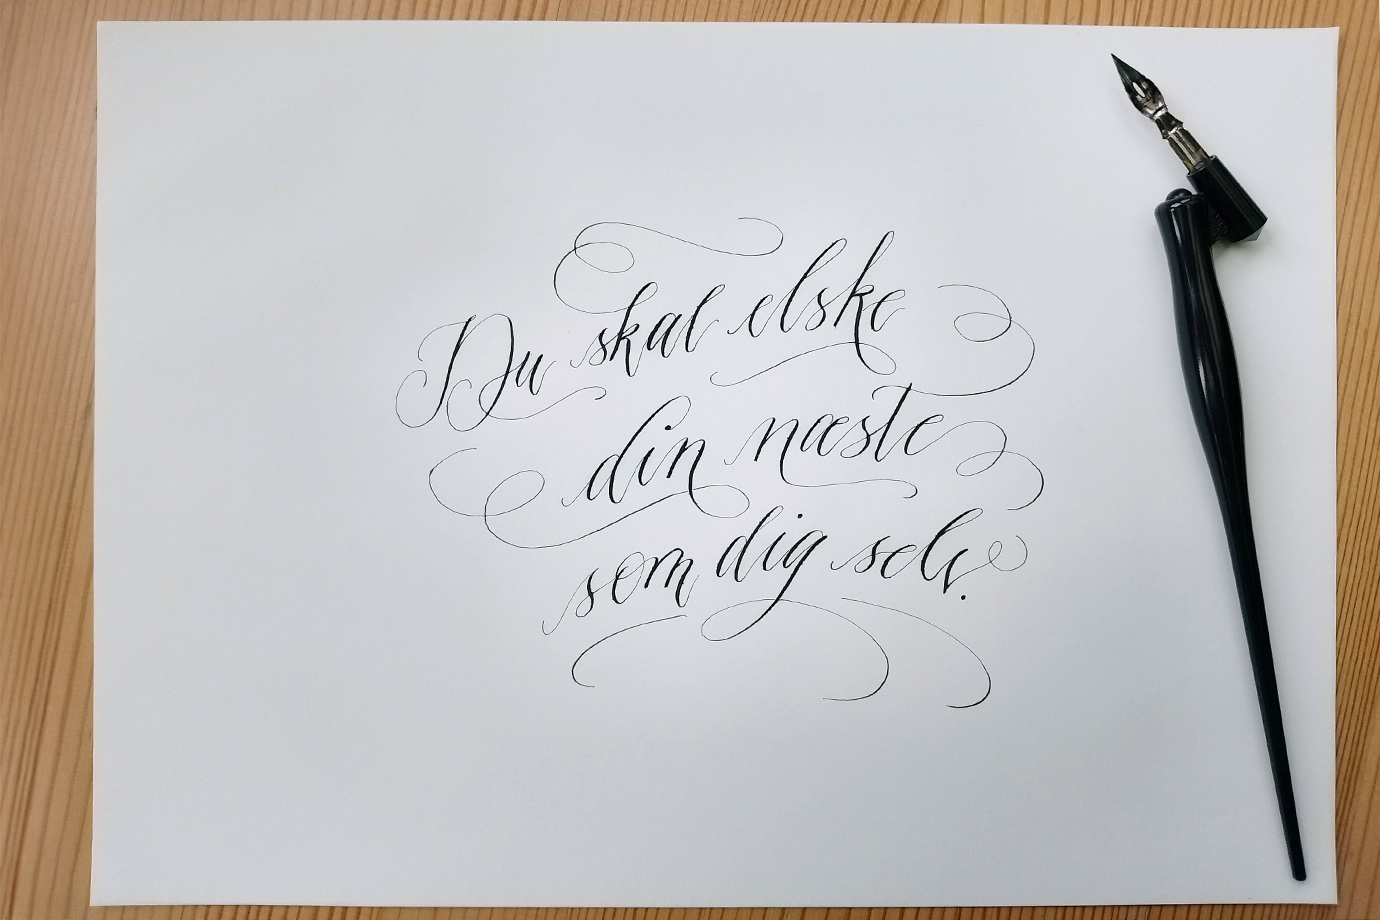 Du skal elske
din næste
som dig selv.